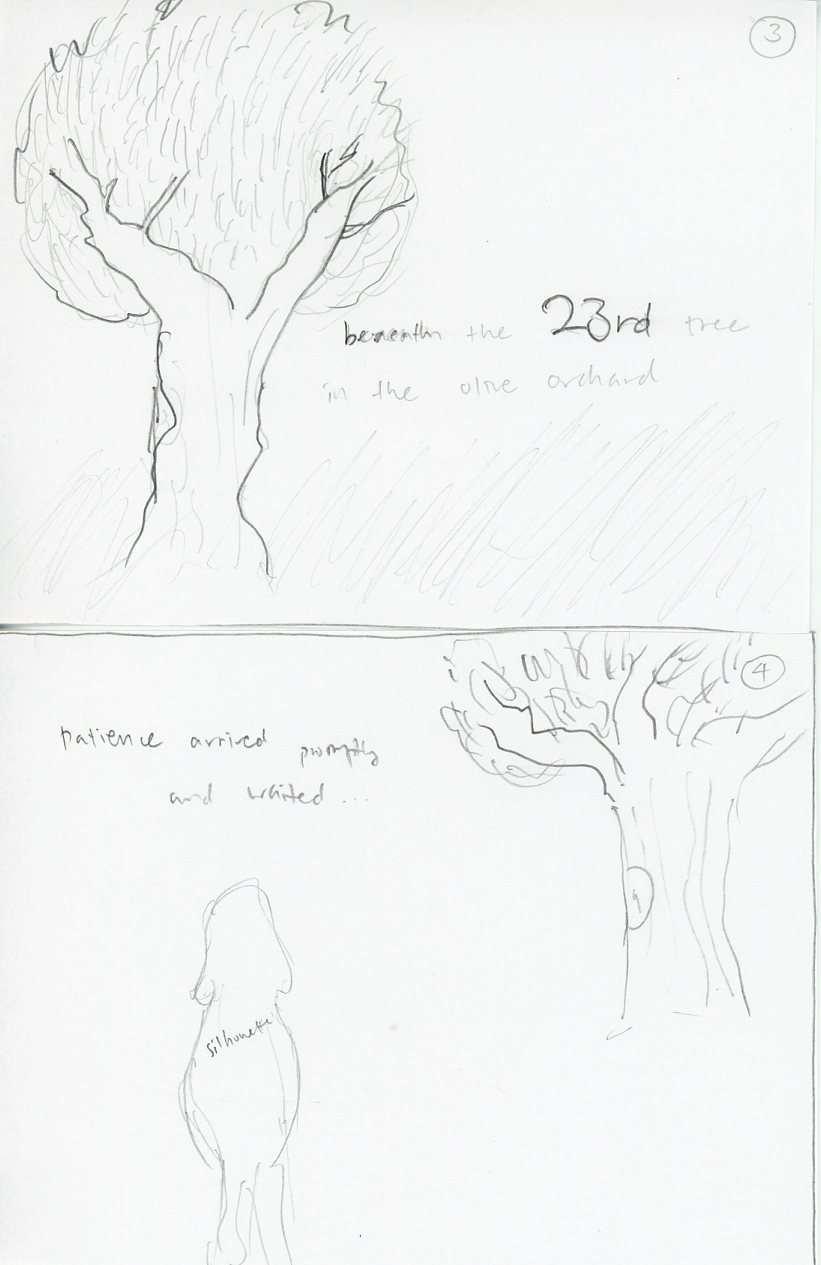 3
beneath the 23rd tree
in the olive orchard
4
patience arrived promptly
and waited ...
silhouette